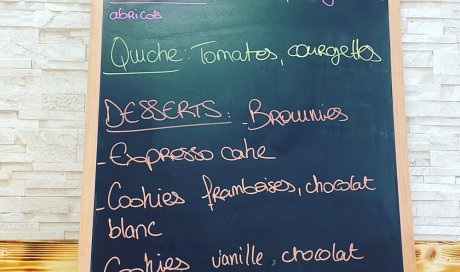 abricots
Quiche: Tomates, courgettes
DESSERTS: - Brownies
- Expresso cake
- Cookies framboises, chocolat
blanc
Cookies vanille, chocolat